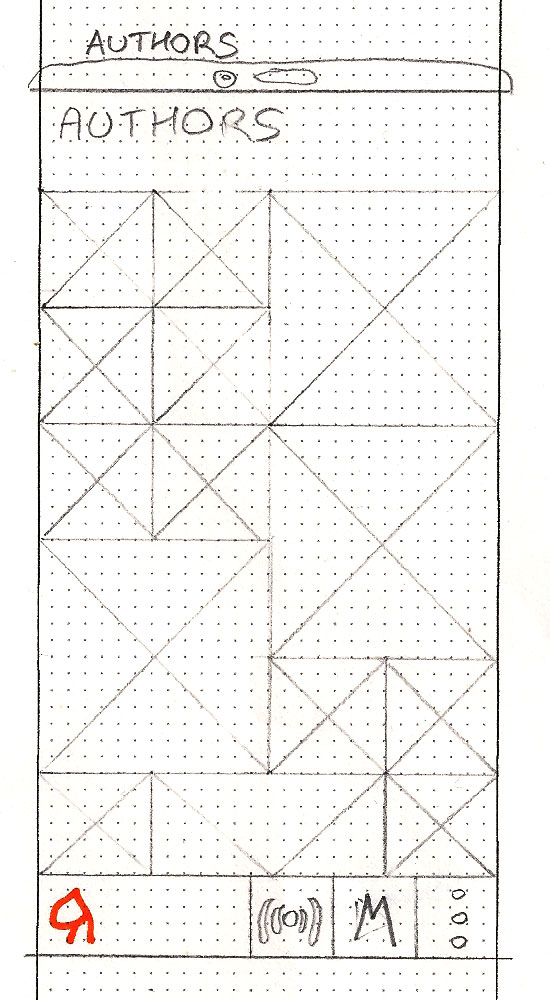 AUTHORS
AUTHORS
M